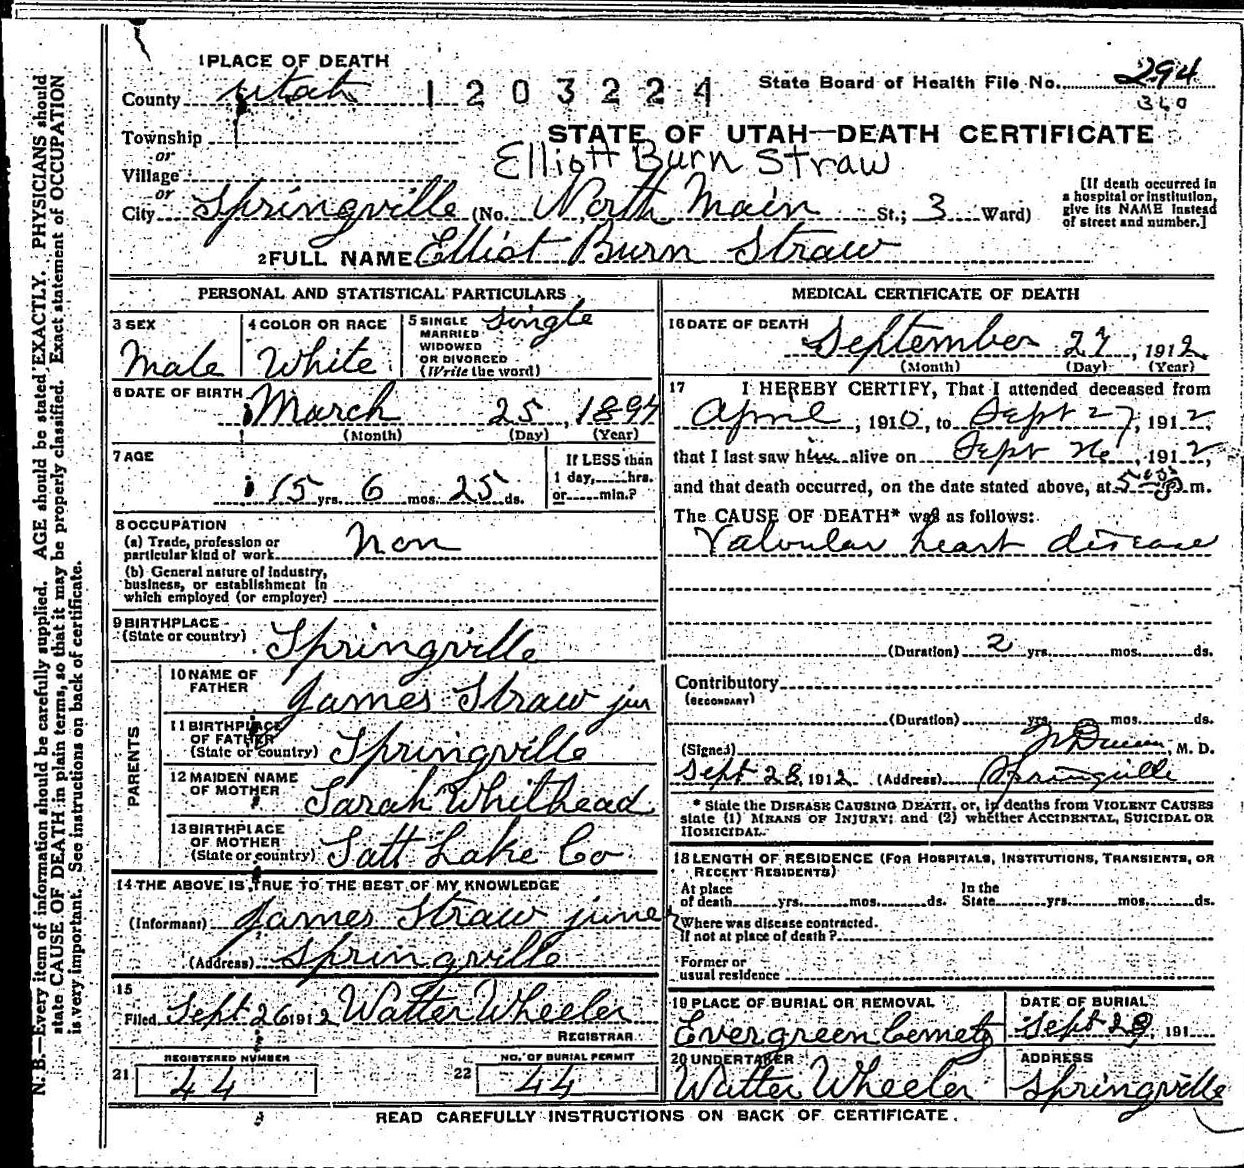 1 PLACE OF DEATH
County Utah 1203224 State Board of Health File No. 294
360
Township
or
STATE OF UTAH—DEATH CERTIFICATE
Elliott Burn Straw
Village
or
City Springville (No. North Main St.; 3 Ward)
[If death occurred in
a hospital or institution,
give its NAME instead
of street and number.]
2 FULL NAME Elliot Burn Straw
PERSONAL AND STATISTICAL PARTICULARS
3 SEX
Male
4 COLOR OR RACE
White
5 SINGLE
MARRIED
WIDOWED
OR DIVORCED
(Write the word)
Single
6 DATE OF BIRTH
March 25, 1897
(Month) (Day) (Year)
7 AGE
15 yrs. 6 mos. 25 ds.
If LESS than
1 day,.....hrs.
or.....min.?
8 OCCUPATION
(a) Trade, profession or
particular kind of work Non
(b) General nature of Industry,
business, or establishment in
which employed (or employer)
9 BIRTHPLACE
(State or country) Springville
PARENTS
10 NAME OF
FATHER James Straw jun
11 BIRTHPLACE
OF FATHER
(State or country) Springville
12 MAIDEN NAME
OF MOTHER Sarah Whithead
13 BIRTHPLACE
OF MOTHER
(State or country) Satt Lake Co
14 THE ABOVE IS TRUE TO THE BEST OF MY KNOWLEDGE
(Informant) James Straw juner
(Address) Springville
15
Filed Sept 26 1912 Walter Wheeler
REGISTRAR
REGISTERED NUMBER
21 44
NO. OF BURIAL PERMIT
22 44
MEDICAL CERTIFICATE OF DEATH
16 DATE OF DEATH
September 27, 1912
(Month) (Day) (Year)
17 I HEREBY CERTIFY, That I attended deceased from
April, 1910, to Sept 27, 1912,
that I last saw him alive on Sept 26, 1912,
and that death occurred, on the date stated above, at 5 m.
The CAUSE OF DEATH* was as follows:
Valvular heart disease
(Duration) 2 yrs. mos. ds.
Contributory
(SECONDARY)
(Duration) yrs. mos. ds.
(Signed) , M. D.
Sept 28, 1912 (Address) Springville
* State the DISEASE CAUSING DEATH, or, in deaths from VIOLENT CAUSES
state (1) MEANS OF INJURY; and (2) whether ACCIDENTAL, SUICIDAL OR
HOMICIDAL.
18 LENGTH OF RESIDENCE (FOR HOSPITALS, INSTITUTIONS, TRANSIENTS, OR
RECENT RESIDENTS)
At place
of death yrs. mos. ds.
In the
State yrs. mos. ds.
Where was disease contracted.
If not at place of death?
Former or
usual residence
19 PLACE OF BURIAL OR REMOVAL
Evergreen Cemety
DATE OF BURIAL
Sept 29, 191
20 UNDERTAKER
Walter Wheeler
ADDRESS
Springville
READ CAREFULLY INSTRUCTIONS ON BACK OF CERTIFICATE.
N. B.—Every item of information should be carefully supplied. AGE should be stated EXACTLY. PHYSICIANS should
state CAUSE OF DEATH in plain terms, so that it may be properly classified. Exact statement of OCCUPATION
is very important. See instructions on back of certificate.